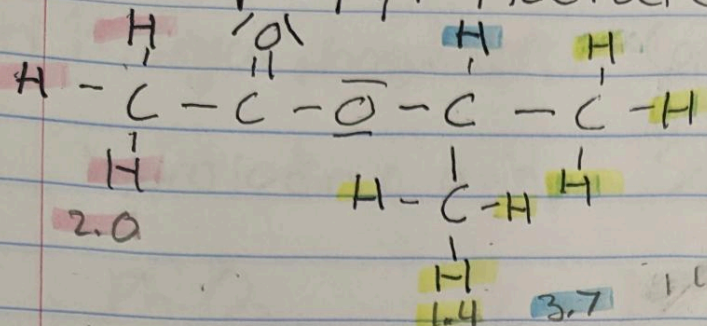 H O H H
H - C - C - O - C - C - H
H H - C - H H
2.0 H
1.4 3.7